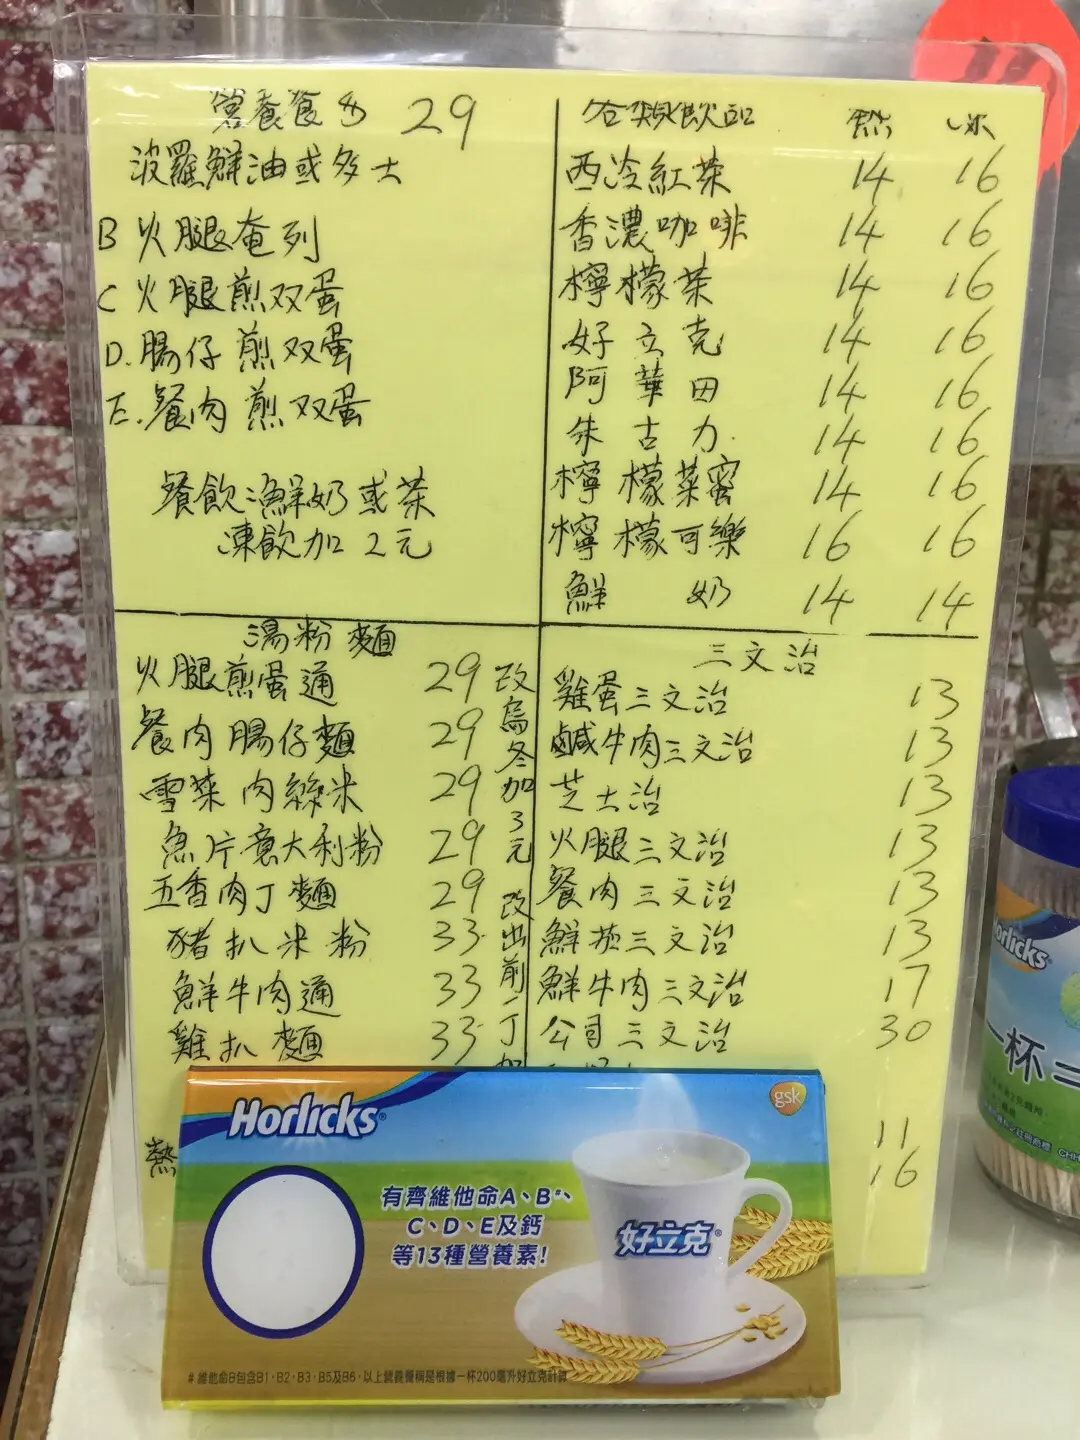 營養食品 29
波羅鮮油或多士
B 火腿奄列
C 火腿煎双蛋
D. 腸仔煎双蛋
E. 餐肉煎双蛋
餐飲:鮮奶或茶
凍飲加 2元
各類飲品 热 冰
西冷紅茶 14 16
香濃咖啡 14 16
檸檬茶 14 16
好立克 14 16
阿華田 14 16
朱古力. 14 16
檸檬菜蜜 14 16
檸檬可樂 16 16
鮮奶 14 14
湯粉麵
火腿煎蛋通 29
餐肉腸仔麵 29
雪菜肉絲米 29
魚片意大利粉 29
五香肉丁麵 29
豬扒米粉 33
鮮牛肉通 33
雞扒麵 33
改烏冬加3元
改出前一丁加
三文治
雞蛋三文治 13
鹹牛肉三文治 13
芝士治 13
火腿三文治 13
餐肉三文治 13
鮮茄三文治 13
鮮牛肉三文治 17
公司三文治 30
11
熱 16
Horlicks
gsk
有齊維他命A、B#、
C、D、E及鈣
等13種營養素!
好立克
# 維他命B包含B1, B2, B3, B5及B6, 以上營養聲稱是根據一杯200毫升好立克計算
Horlicks
一杯=